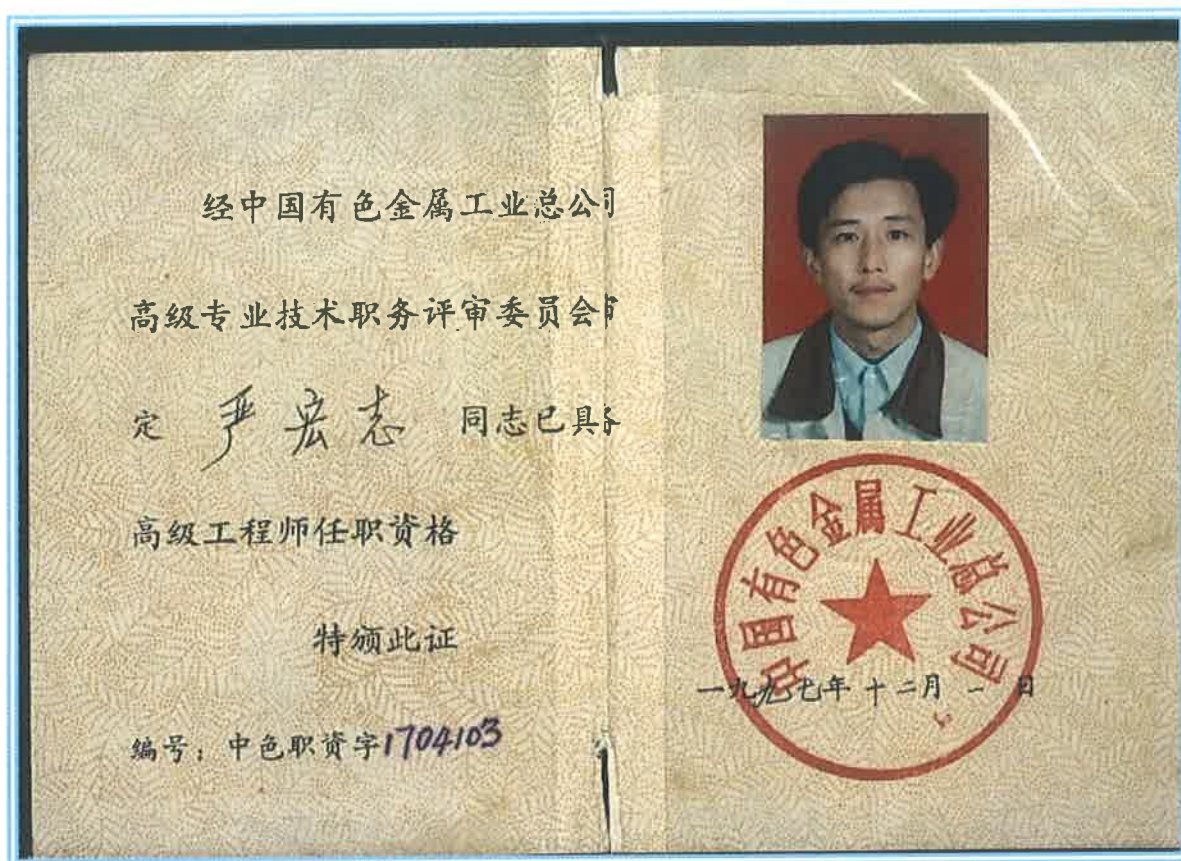 经中国有色金属工业总公司
高级专业技术职务评审委员会审
定 严宏志 同志已具备
高级工程师任职资格
特颁此证
编号：中色职资字1704103
中国有色金属工业总公司
一九九七年十二月一日